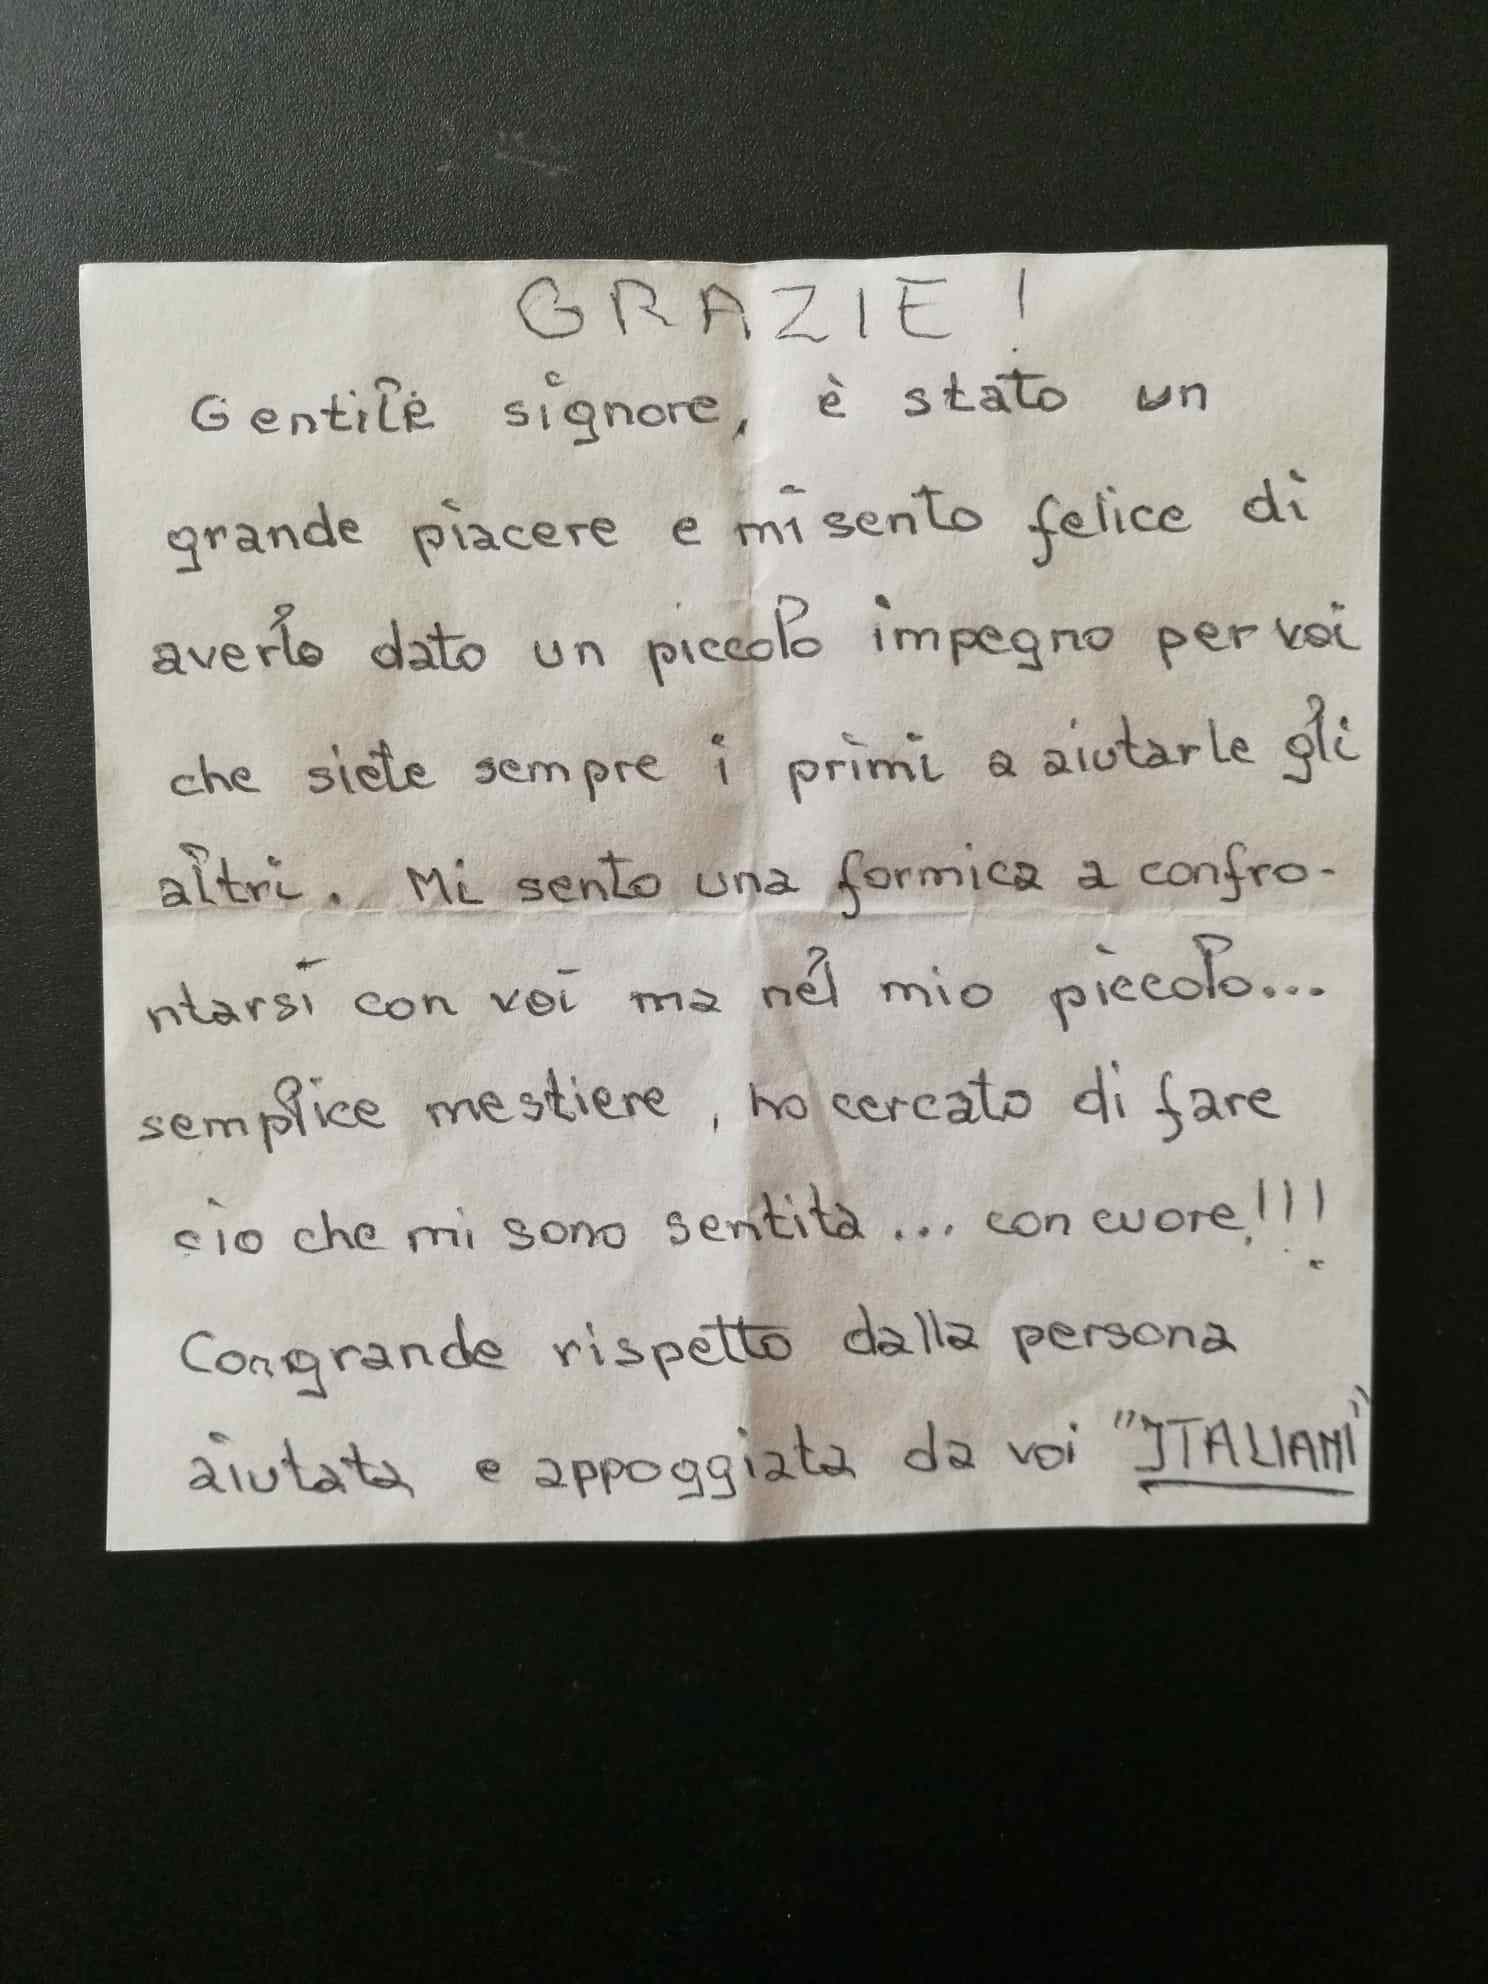 GRAZIE!
Gentile signore, è stato un
grande piacere e mi sento felice di
averlo dato un piccolo impegno per voi
che siete sempre i primi a aiutarle gli
altri. Mi sento una formica a confro-
ntarsi con voi ma nel mio piccolo...
semplice mestiere, ho cercato di fare
ciò che mi sono sentita... con cuore!!!
Con grande rispetto dalla persona
aiutata e appoggiata da voi "ITALIANI"